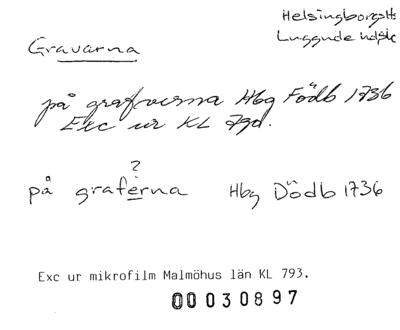 Helsingborgs
Luggude hdsk
Gravarna
på grafverna Hbg Födb 1736
Exc ur KL 79d.
?
på graferna Hbg Dödb 1736
Exc ur mikrofilm Malmöhus län KL 793.
00030897